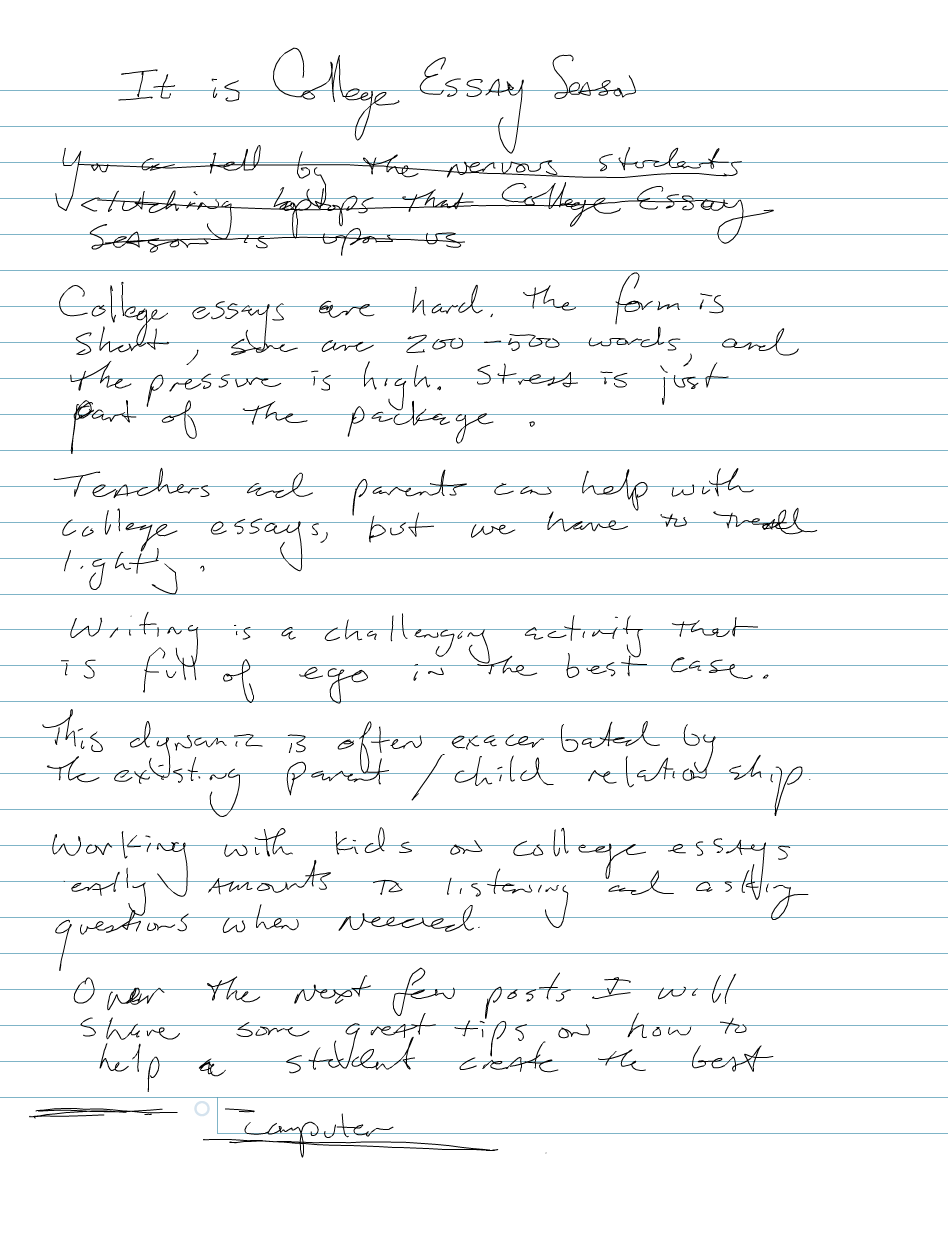 It is College Essay Season
You can tell by the nervous students
clutching laptops that College Essay
Season is upon us
College essays are hard. The form is
short, some are 200-500 words, and
the pressure is high. Stress is just
part of the package.
Teachers and parents can help with
college essays, but we have to tread
lightly.
Writing is a challenging activity that
is full of ego in the best case.
This dynamic is often exacerbated by
the existing parent/child relationship.
Working with kids on college essays
amounts to listening and asking
questions when needed.
Over the next few posts I will
share some great tips on how to
help a student create the best
computer